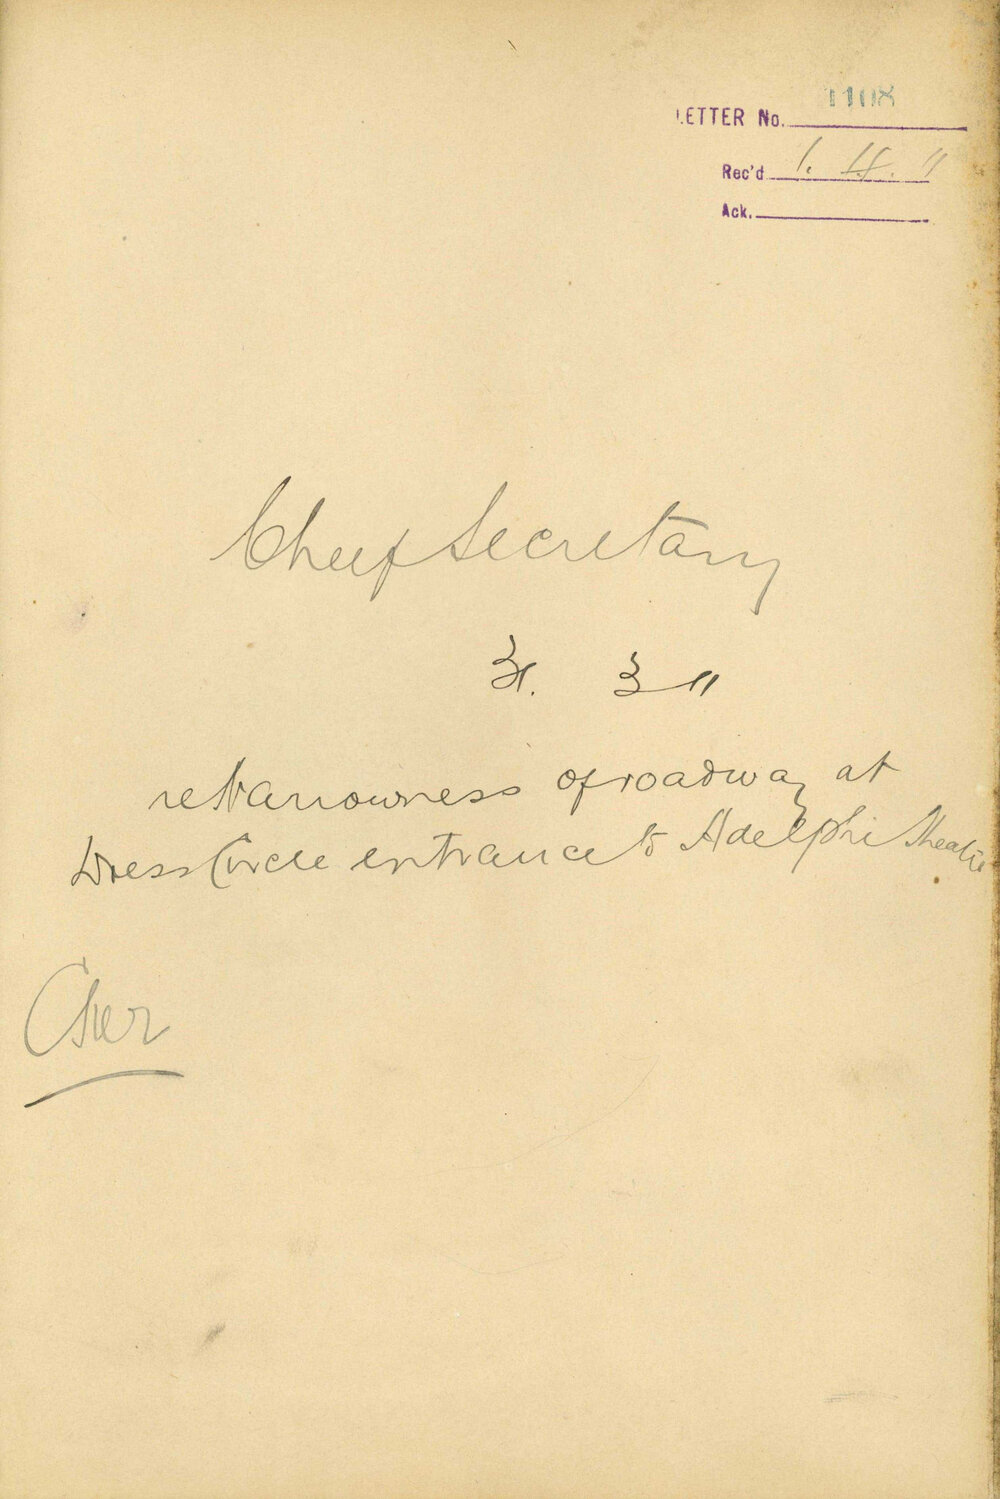 LETTER No. 1108
Rec'd 1. 4. 11
Ack.
Chief Secretary
31. 3 11
re Narrowness of roadway at
Dress Circle entrance to Adelphi Theatre